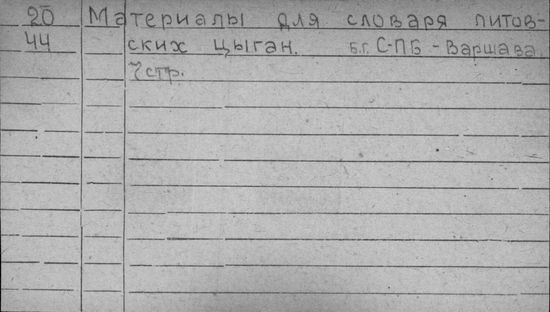 20 Материалы для словаря литов-
44 ских цыган. б.г. С-ПБ - Варшава.
7 стр.